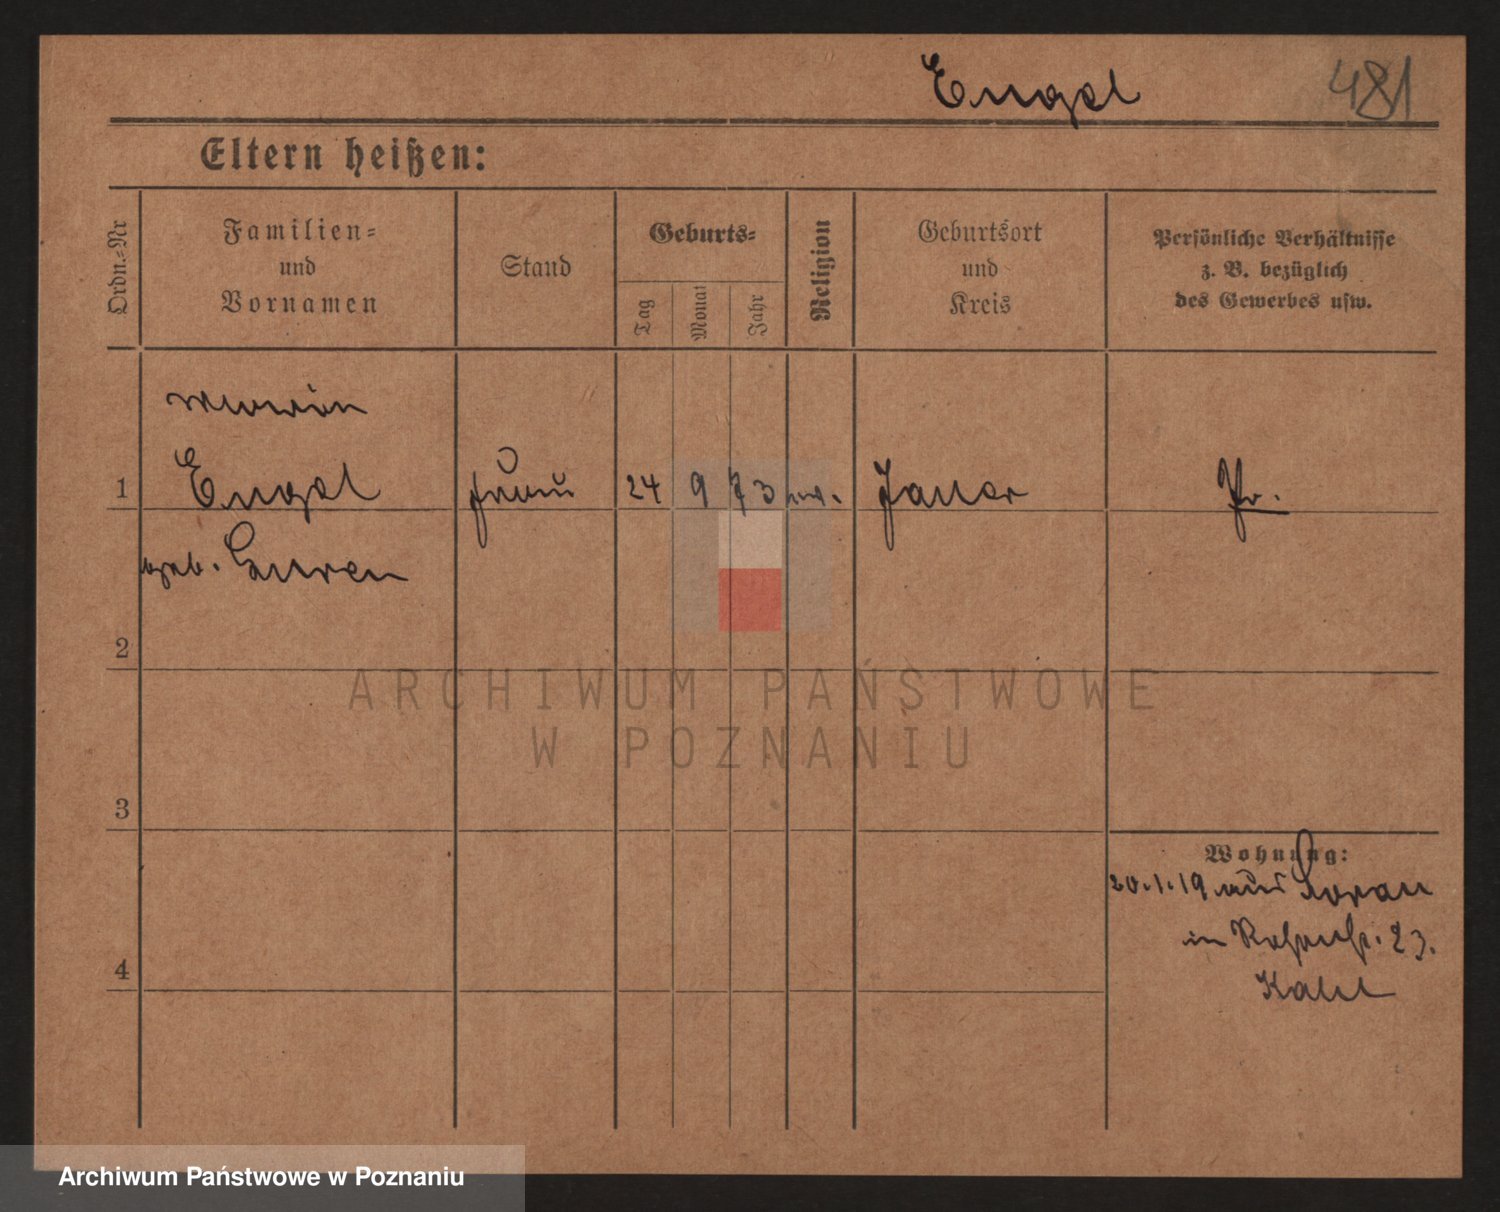 Engel 481
Eltern heißen:
Ordn.-Nr Familien- und Vornamen Stand Geburts- Tag Monat Jahr Religion Geburtsort und Kreis Persönliche Verhältnisse z. B. bezüglich des Gewerbes usw.
1 Engel Frau 24 9 73 ev. Jauer Pr.
geb.
2
3
4
Wohnung:
20.1.19 aus
in 23.
ARCHIWUM PAŃSTWOWE
W POZNANIU
Archiwum Państwowe w Poznaniu